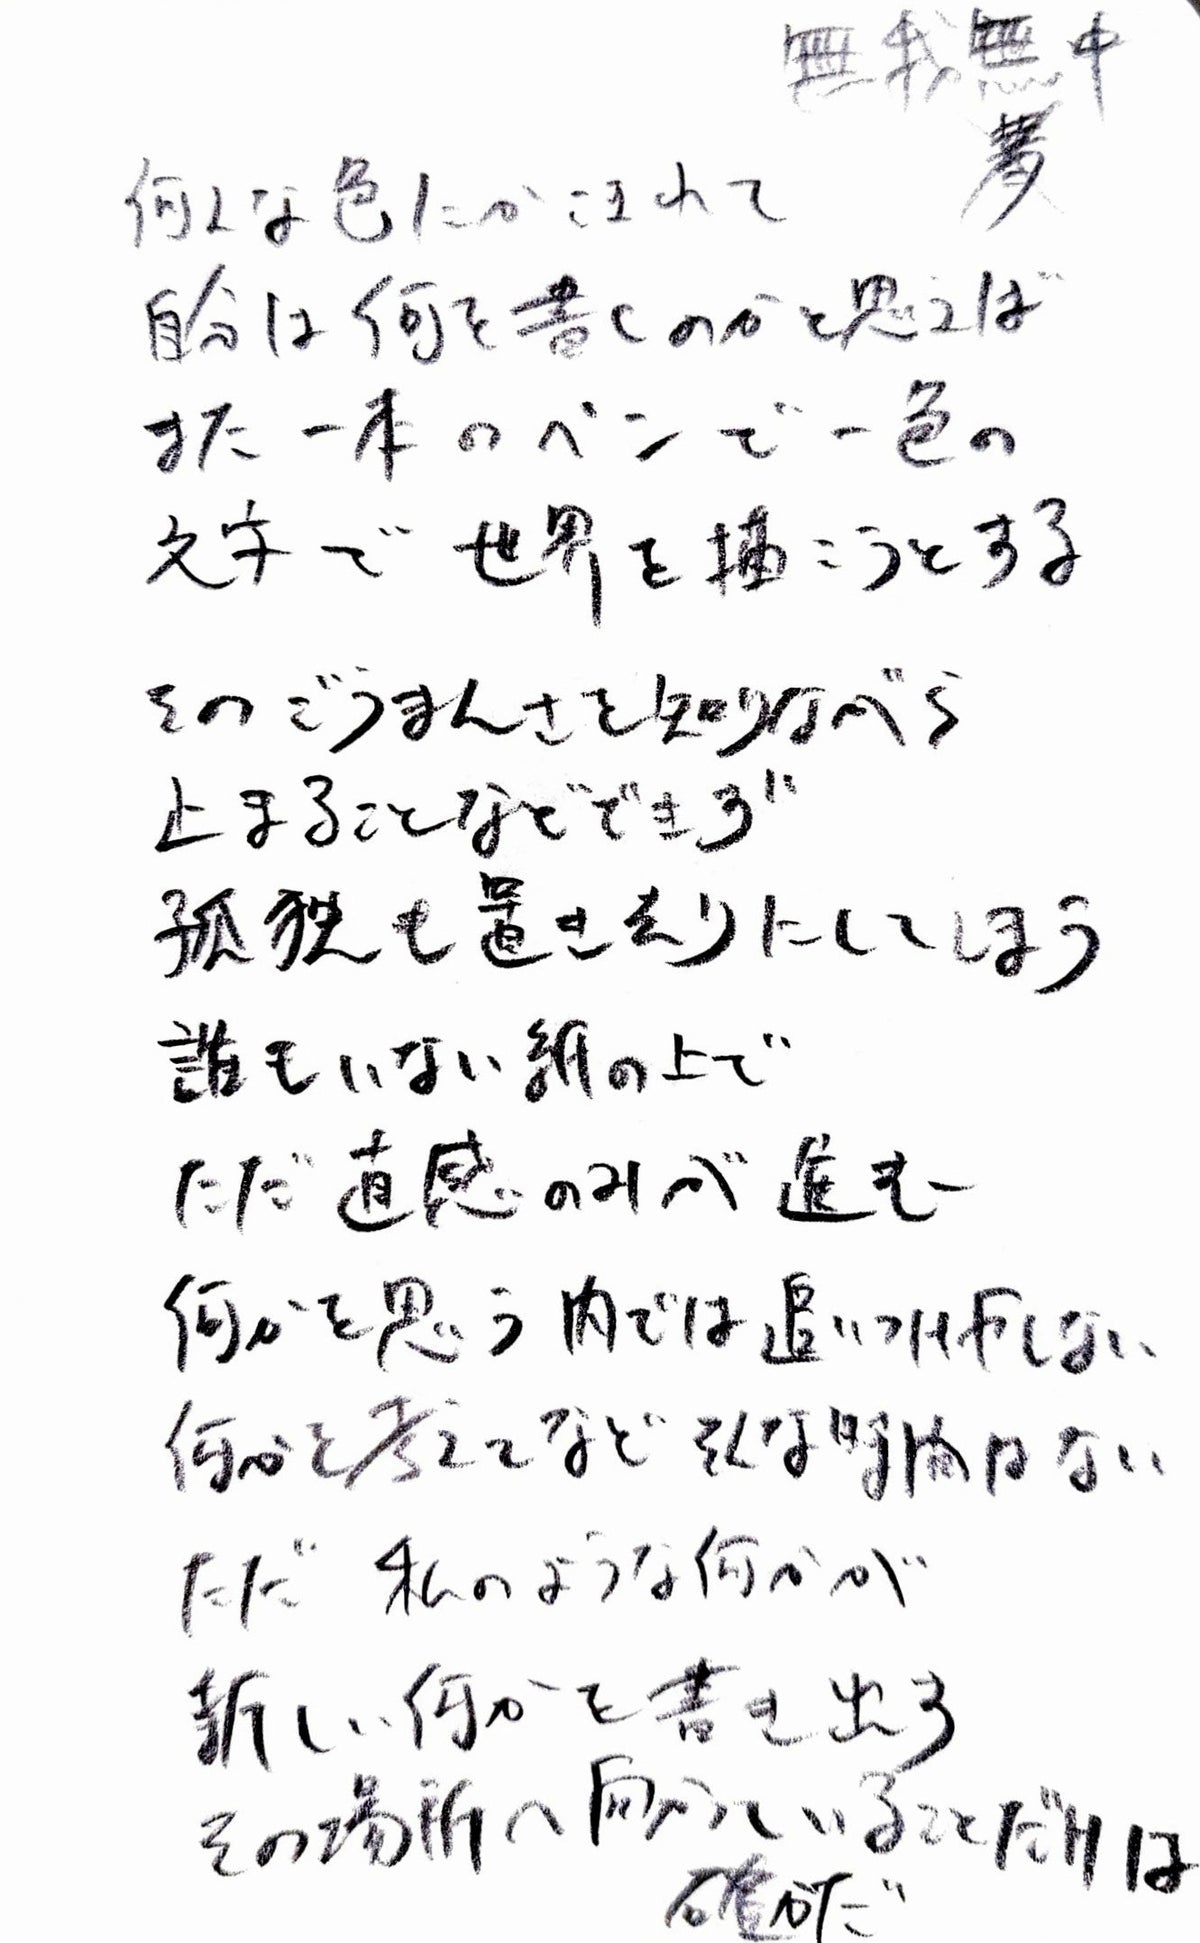 無我無中
夢
何んな色にかこまれて
自分は何を書くのかと思えば
また一本のペンで一色の
文字で世界を描こうとする
そのごうまんさを知りながら
止まることなどできず
孤独も置き去りにしてしまう
誰もいない紙の上で
ただ直感のみが進む
何かを思う内では追い付けやしない
何かを考えてなどそんな時間はない
ただ 私のような何かが
新しい何かを書き出す
その場所へ向かっていることだけは
確かだ